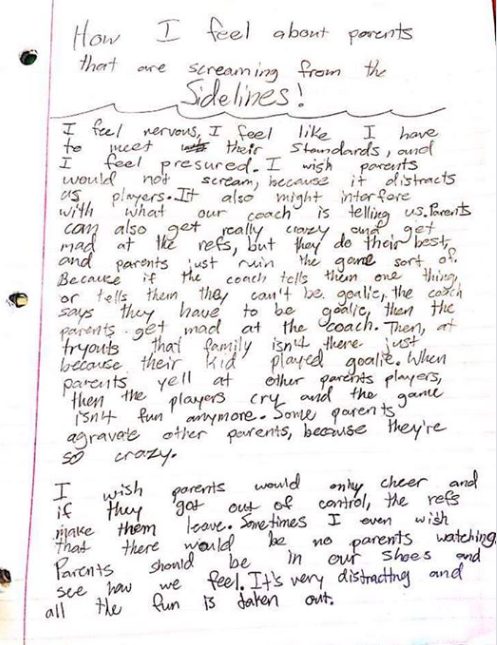 How I feel about parents
that are screaming from the
Sidelines!
I feel nervous, I feel like I have
to meet their standards, and
I feel presured. I wish parents
would not scream, because it distracts
us players. It also might interfore
with what our coach is telling us. Parents
can also get really crazy and get
mad at the refs, but they do their best,
and parents just ruin the game sort of.
Because if the coach tells them one thing,
or tells them they can't be goalie, the coach
says they have to be goalie, then the
parents get mad at the coach. Then, at
tryouts that family isn't there just
because their kid played goalie. When
parents yell at other parents players,
then the players cry and the game
isn't fun anymore. Some parents
agravate other parents, because they're
so crazy.
I wish parents would only cheer and
if they got out of control, the refs
make them leave. Sometimes I even wish
that there would be no parents watching
Parents should be in our shoes and
see how we feel. It's very distracting and
all the fun is taken out.